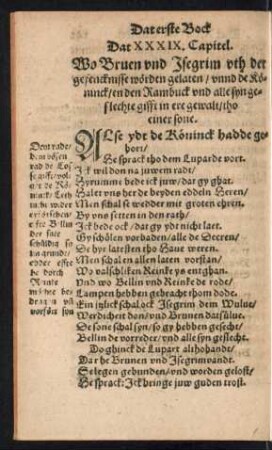 Dat erste Bock
Dat XXXIX. Capitel.
Wo Bruen vnd Isegrim vth der
gefencknisse wörden gelaten / vnnd de Kö-
ninck / en den Rambuck vnd alle syn ge-
slechte gifft in ere gewalt / tho
einer sone.
Alse ydt de Köninck hadde ge-
hort /
He sprack tho dem Luparde vort.
Ick wil don na juwem radt /
Darumme bede ick juw / dat gy ghat.
Halet vns her de beyden eddeln Heren /
Men schal se wedder mit groten ehren.
By vns setten in den rath /
Ick bede ock / dat gy ydt nicht laet.
Gy schölen vorbaden / alle de Deeren /
De hyr latesten tho Haue weren.
Men schal en allen laten vorstan /
Wo valschliken Reinke ys entghan.
Vnd wo Bellin vnd Reinke de rode /
Lampen hebben gebracht thom dode.
Ein jslick schal ock Isegrim dem Wulue /
Werdicheit don / vnd Brunen datsülue.
De sone schal syn / so gy hebben gesecht /
Bellin de vorreder / vnd alle syn geslecht.
Do ghinck de Lupart althohandt /
Dar he Brunen vnd Isegrim vandt.
Se legen gebunden / vnd worden gelost /
He sprack: Ick bringe juw guden trost.
Dem rade /
dem bösen
rad de Losse
gifft / vol-
get de Kö-
ninck / Leth
Bellin
der sake
schüldig so
im grunde /
edder effte
he dorch
Reinke